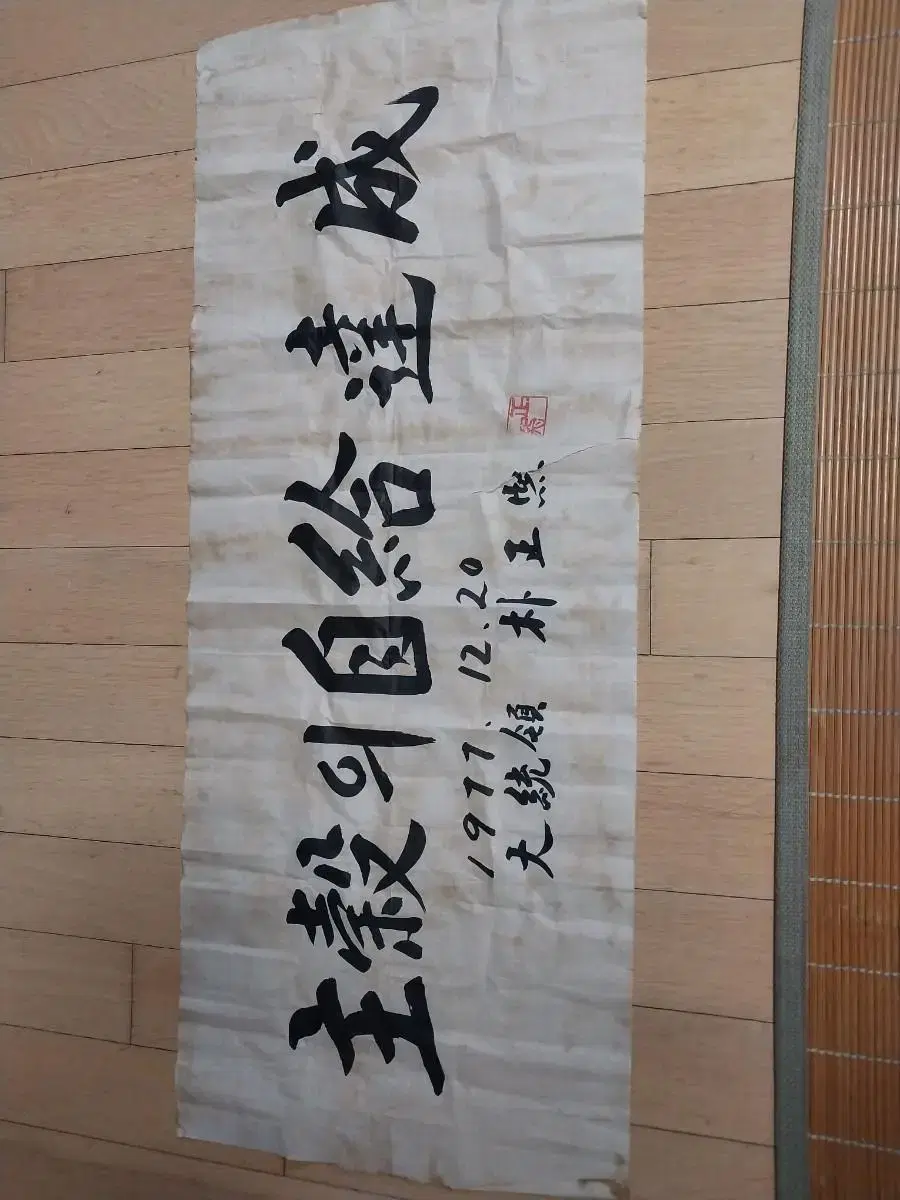 主穀의 自給達成
1977. 12. 20
大統領 朴正熙
正熙